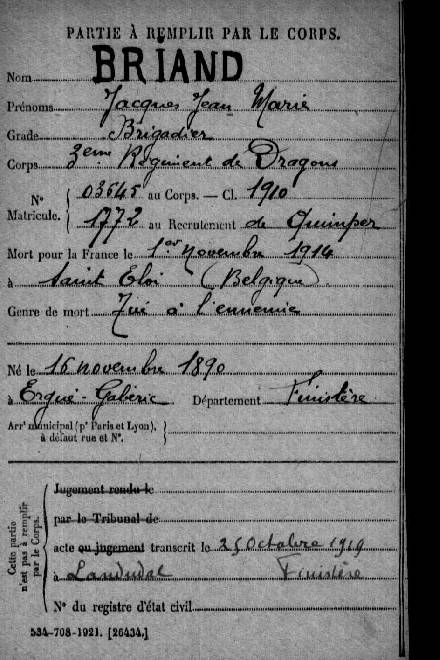 PARTIE À REMPLIR PAR LE CORPS.
Nom BRIAND
Prénoms Jacques Jean Marie
Grade Brigadier
Corps 3eme Régiment de Dragons
N° Matricule. 03545 au Corps. — Cl. 1910
1772 au Recrutement de Quimper
Mort pour la France le 1er Novembre 1914
à Saint Eloi (Belgique)
Genre de mort Tué à l'ennemie
Né le 16 novembre 1890
à Ergué-Gabéric Département Finistère
Arr' municipal (p' Paris et Lyon), à défaut rue et N°.
Cette partie n'est pas à remplir par le Corps.
Jugement rendu le
par le Tribunal de
acte ou jugement transcrit le 25 Octobre 1919
à Landudal Finistère
N° du registre d'état civil
534-708-1921. [26434.]